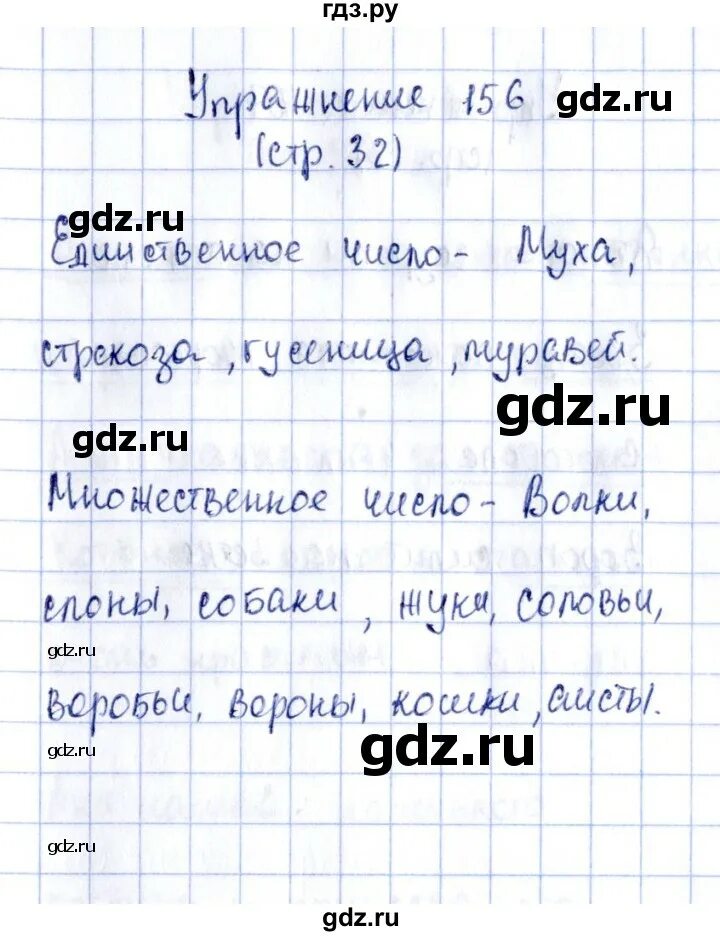 гдз.ру
Упражнение 156 gdz.ru
(стр. 32)
gdz.ru
Единственное число- Муха,
стрекоза, гусеница, муравей.
gdz.ru
gdz.ru
Множественное число- Волки,
слоны, собаки, жуки, соловьи,
gdz.ru
воробьи, вороны, кошки, аисты.
gdz.ru
gdz.ru
gdz.ru
gdz.ru